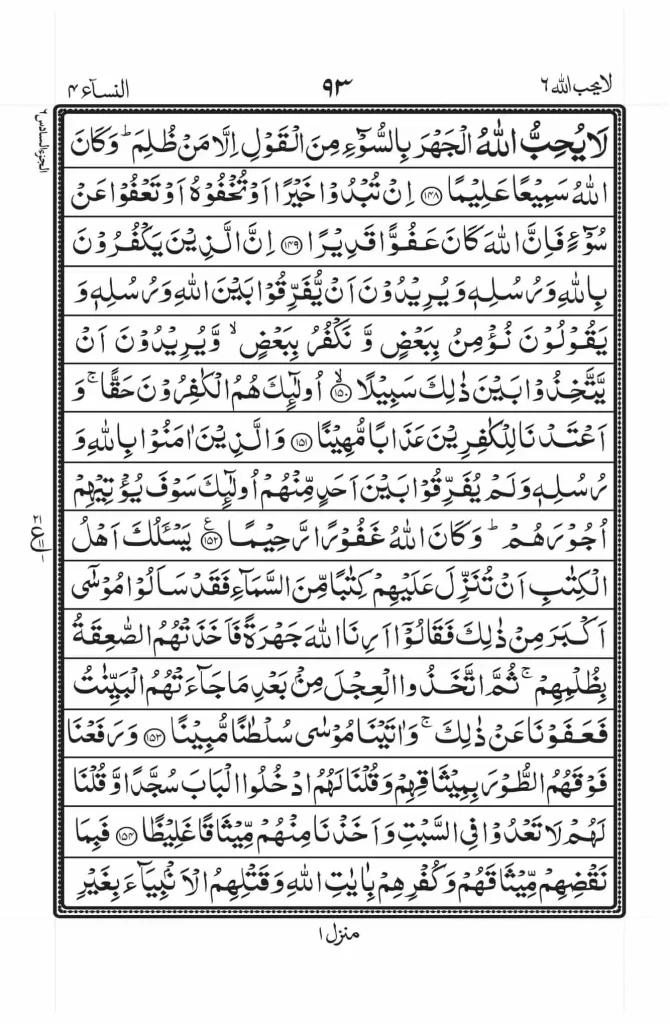 لايحب الله ٦
٩٣
النسآء ٤
الجزء السادس ٦
لَا يُحِبُّ اللّٰهُ الْجَهْرَ بِالسُّوْٓءِ مِنَ الْقَوْلِ اِلَّا مَنْ ظُلِمَ ؕ وَكَانَ
اللّٰهُ سَمِيْعًا عَلِيْمًا ﴿۱۴۸﴾ اِنْ تُبْدُوْا خَيْرًا اَوْ تُخْفُوْهُ اَوْ تَعْفُوْا عَنْ
سُوْٓءٍ فَاِنَّ اللّٰهَ كَانَ عَفُوًّا قَدِيْرًا ﴿۱۴۹﴾ اِنَّ الَّذِيْنَ يَكْفُرُوْنَ
بِاللّٰهِ وَرُسُلِهٖ وَيُرِيْدُوْنَ اَنْ يُّفَرِّقُوْا بَيْنَ اللّٰهِ وَرُسُلِهٖ وَ
يَقُوْلُوْنَ نُؤْمِنُ بِبَعْضٍ وَّ نَكْفُرُ بِبَعْضٍ ۙ وَّيُرِيْدُوْنَ اَنْ
يَّتَّخِذُوْا بَيْنَ ذٰلِكَ سَبِيْلًا ﴿۱۵۰﴾ ۙ اُولٰٓئِكَ هُمُ الْكٰفِرُوْنَ حَقًّا ۚ وَ
اَعْتَدْنَا لِلْكٰفِرِيْنَ عَذَابًا مُّهِيْنًا ﴿۱۵۱﴾ وَالَّذِيْنَ اٰمَنُوْا بِاللّٰهِ وَ
رُسُلِهٖ وَلَمْ يُفَرِّقُوْا بَيْنَ اَحَدٍ مِّنْهُمْ اُولٰٓئِكَ سَوْفَ يُؤْتِيْهِمْ
اُجُوْرَهُمْ ؕ وَكَانَ اللّٰهُ غَفُوْرًا رَّحِيْمًا ﴿۱۵۲﴾ ع يَسْـَٔلُكَ اَهْلُ
الْكِتٰبِ اَنْ تُنَزِّلَ عَلَيْهِمْ كِتٰبًا مِّنَ السَّمَآءِ فَقَدْ سَاَلُوْا مُوْسٰٓى
اَكْبَرَ مِنْ ذٰلِكَ فَقَالُوْٓا اَرِنَا اللّٰهَ جَهْرَةً فَاَخَذَتْهُمُ الصّٰعِقَةُ
بِظُلْمِهِمْ ۚ ثُمَّ اتَّخَذُوا الْعِجْلَ مِنْۢ بَعْدِ مَا جَآءَتْهُمُ الْبَيِّنٰتُ
فَعَفَوْنَا عَنْ ذٰلِكَ ۚ وَاٰتَيْنَا مُوْسٰى سُلْطٰنًا مُّبِيْنًا ﴿۱۵۳﴾ وَرَفَعْنَا
فَوْقَهُمُ الطُّوْرَ بِمِيْثَاقِهِمْ وَقُلْنَا لَهُمُ ادْخُلُوا الْبَابَ سُجَّدًا وَّقُلْنَا
لَهُمْ لَا تَعْدُوْا فِى السَّبْتِ وَاَخَذْنَا مِنْهُمْ مِّيْثَاقًا غَلِيْظًا ﴿۱۵۴﴾ فَبِمَا
نَقْضِهِمْ مِّيْثَاقَهُمْ وَكُفْرِهِمْ بِاٰيٰتِ اللّٰهِ وَقَتْلِهِمُ الْاَنْۢبِيَآءَ بِغَيْرِ
منزل ١